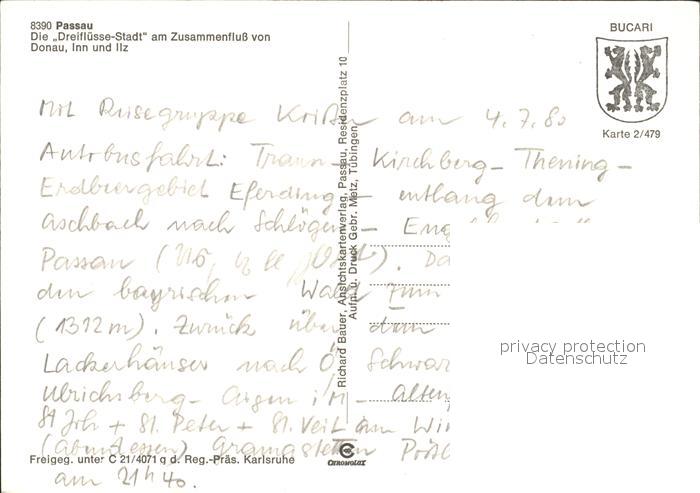 8390 Passau
Die „Dreiflüsse-Stadt" am Zusammenfluß von
Donau, Inn und Ilz
BUCARI
Karte 2/479
Mit Reisegruppe am 4.7.80
Autobusfahrt: Traun - Kirchberg - Thening -
Erdbeergebiet Eferding - entlang dem
Aschbach nach Schlögen -
Passau (
den bayrischen Wald zum
(1312m). Zurück über dem
Lackerhäuser nach Ö. Schwar
Ulrichsberg - Aigen i/M -
St Joh + St. Peter + St. Veit am
(Abendessen) Gramastetten
am 21h40.
Richard Bauer, Ansichtskartenverlag, Passau, Residenzplatz 10
Aufn. u. Druck Gebr. Metz, Tübingen
privacy protection
Datenschutz
Freigeg. unter C 21/4071 q d. Reg.-Präs. Karlsruhe
CHROMOLUX